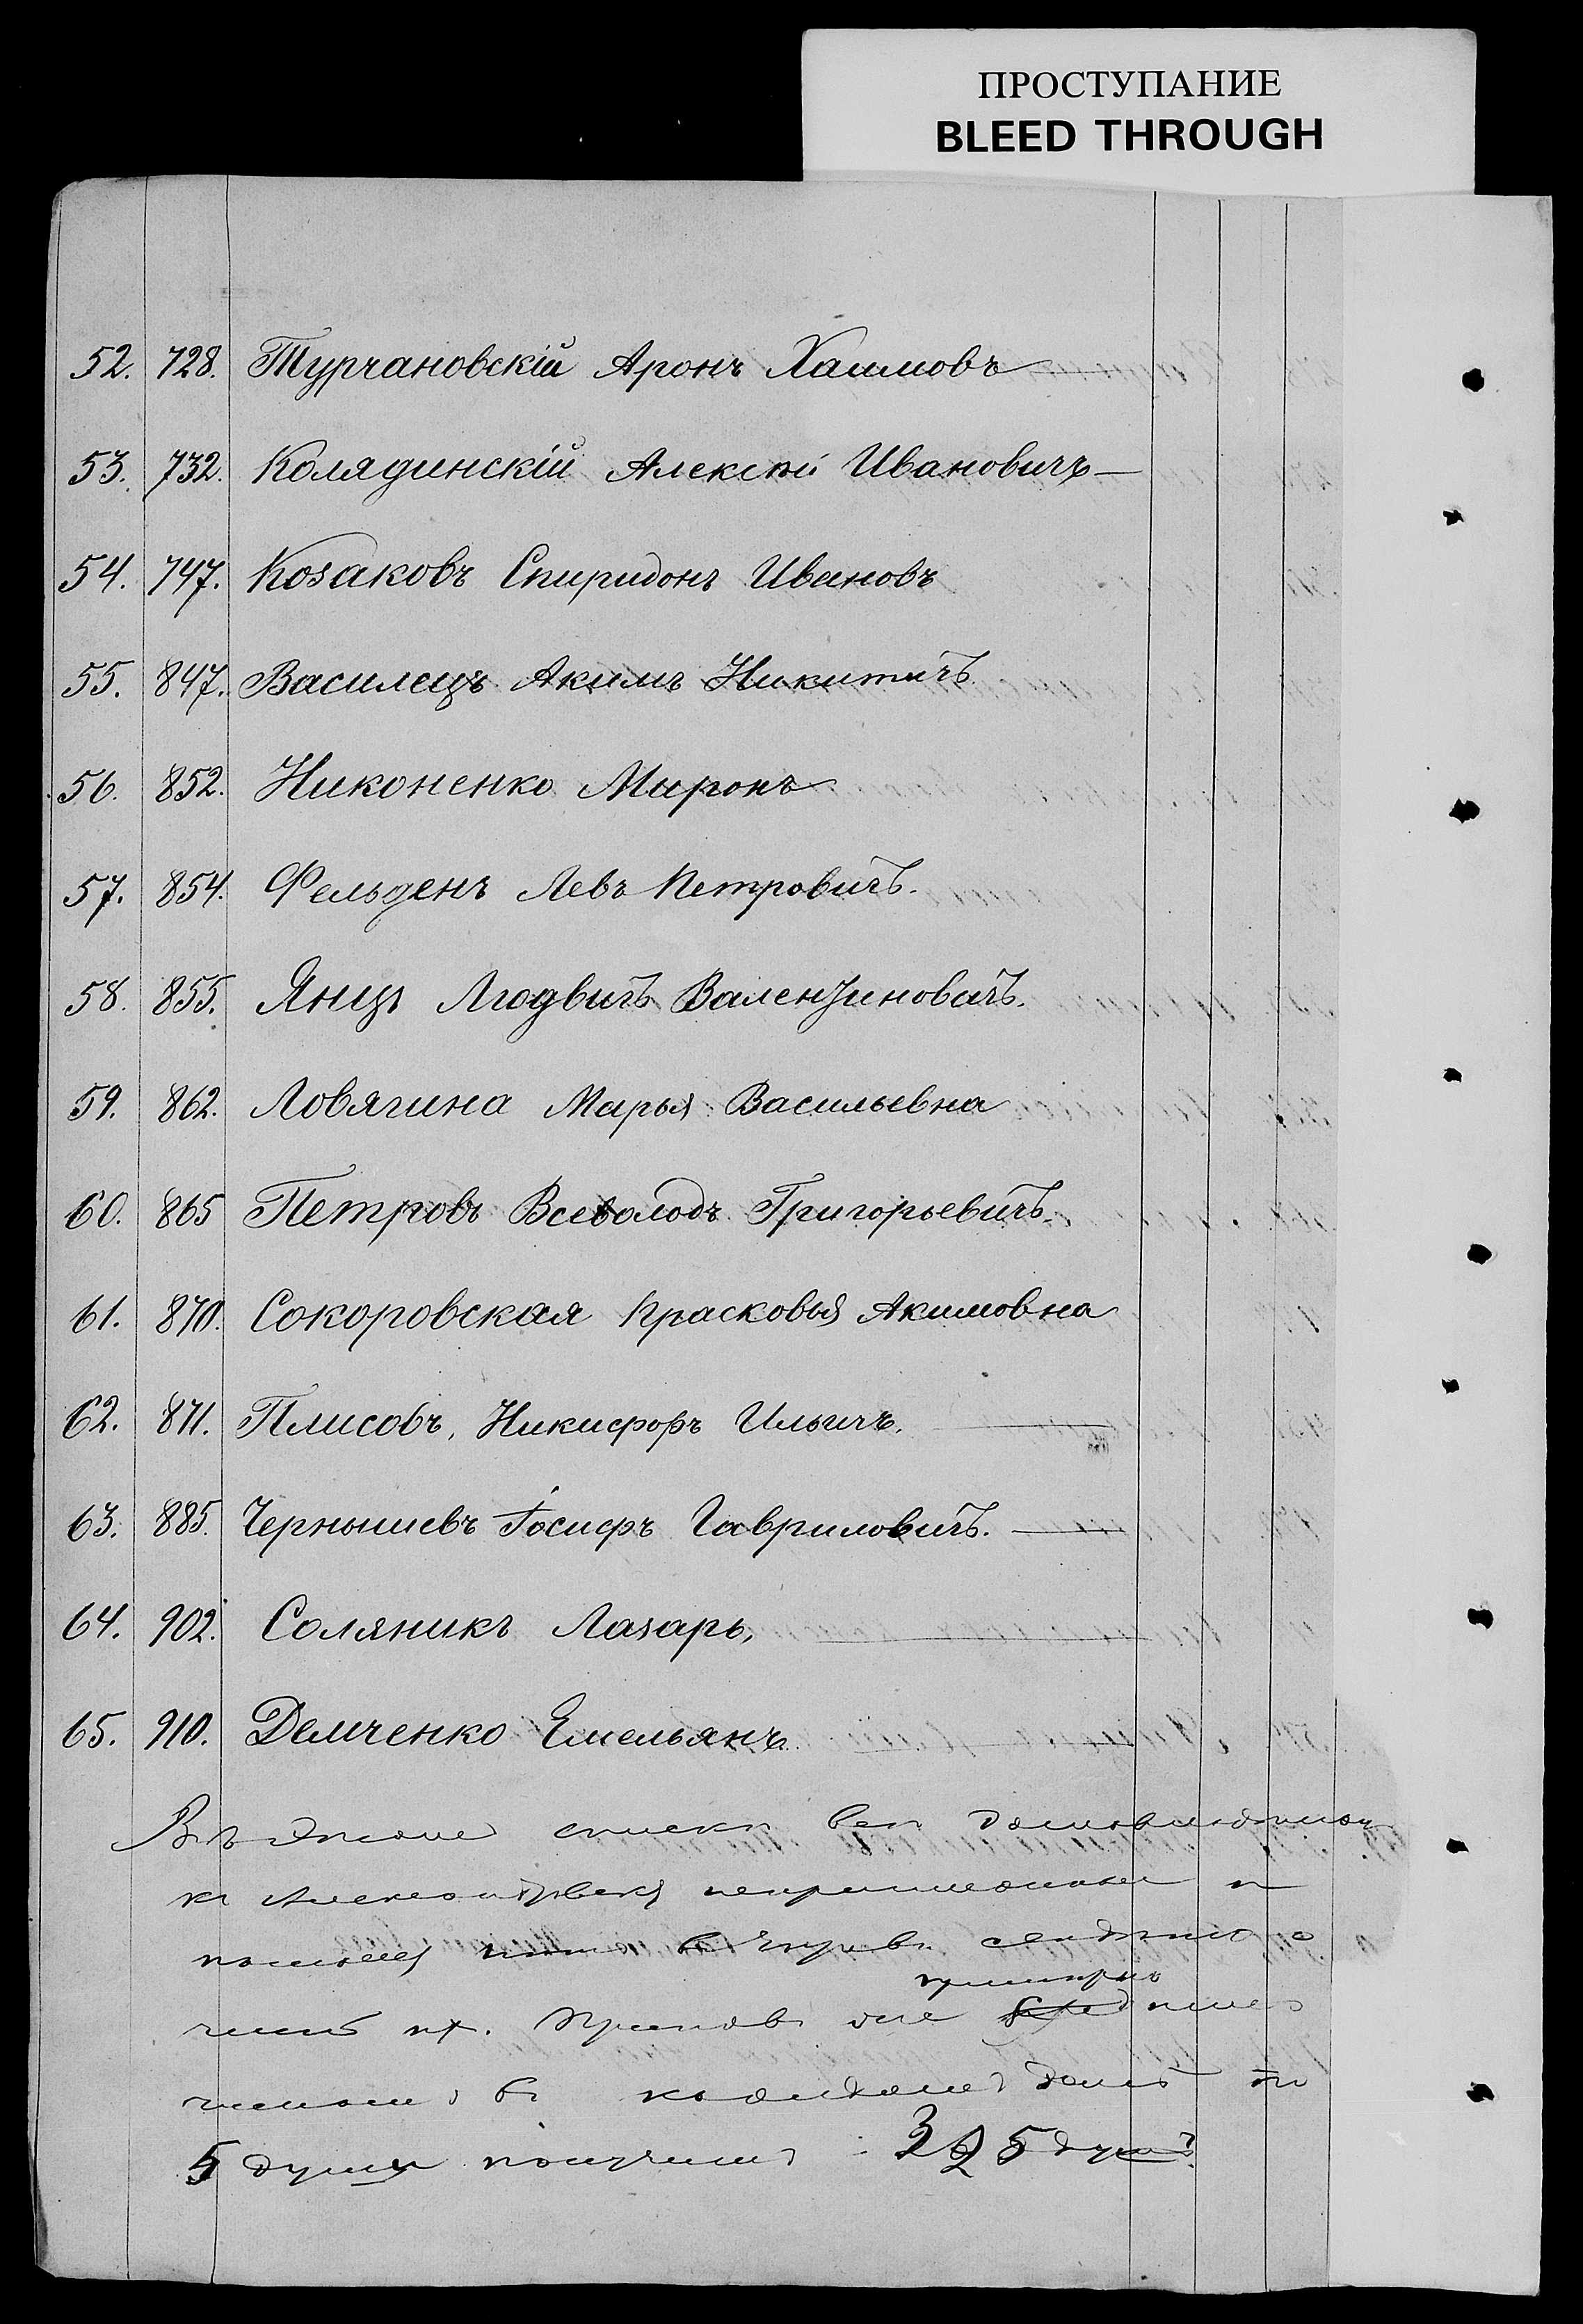 ПРОСТУПАНИЕ
BLEED THROUGH
52. 728. Турчановскій Аронъ Хаимовъ
53. 732. Колядинскій Алексѣй Ивановичъ
54. 747. Козаковъ Спиридонъ Ивановъ
55. 847. Василецъ Акимъ Никитичъ
56. 852. Никоненко Миронъ
57. 854. Фельденъ Левъ Петровичъ.
58. 855. Янцъ Людвигъ Валентиновичъ.
59. 862. Ловягина Марья Васильевна
60. 865 Петровъ Всеволодъ Григорьевичъ.
61. 870. Сокоровская Прасковья Акимовна
62. 871. Плисовъ, Никифоръ Ильичъ.
63. 885. Чернышевъ Іосифъ Гавриловичъ.
64. 902. Соляникъ Лазарь,
65. 910. Демченко Емельянъ.
Въ этомъ списки все
къ
примѣрно
въ каждомъ домѣ по
5 душъ получимъ 325 душъ